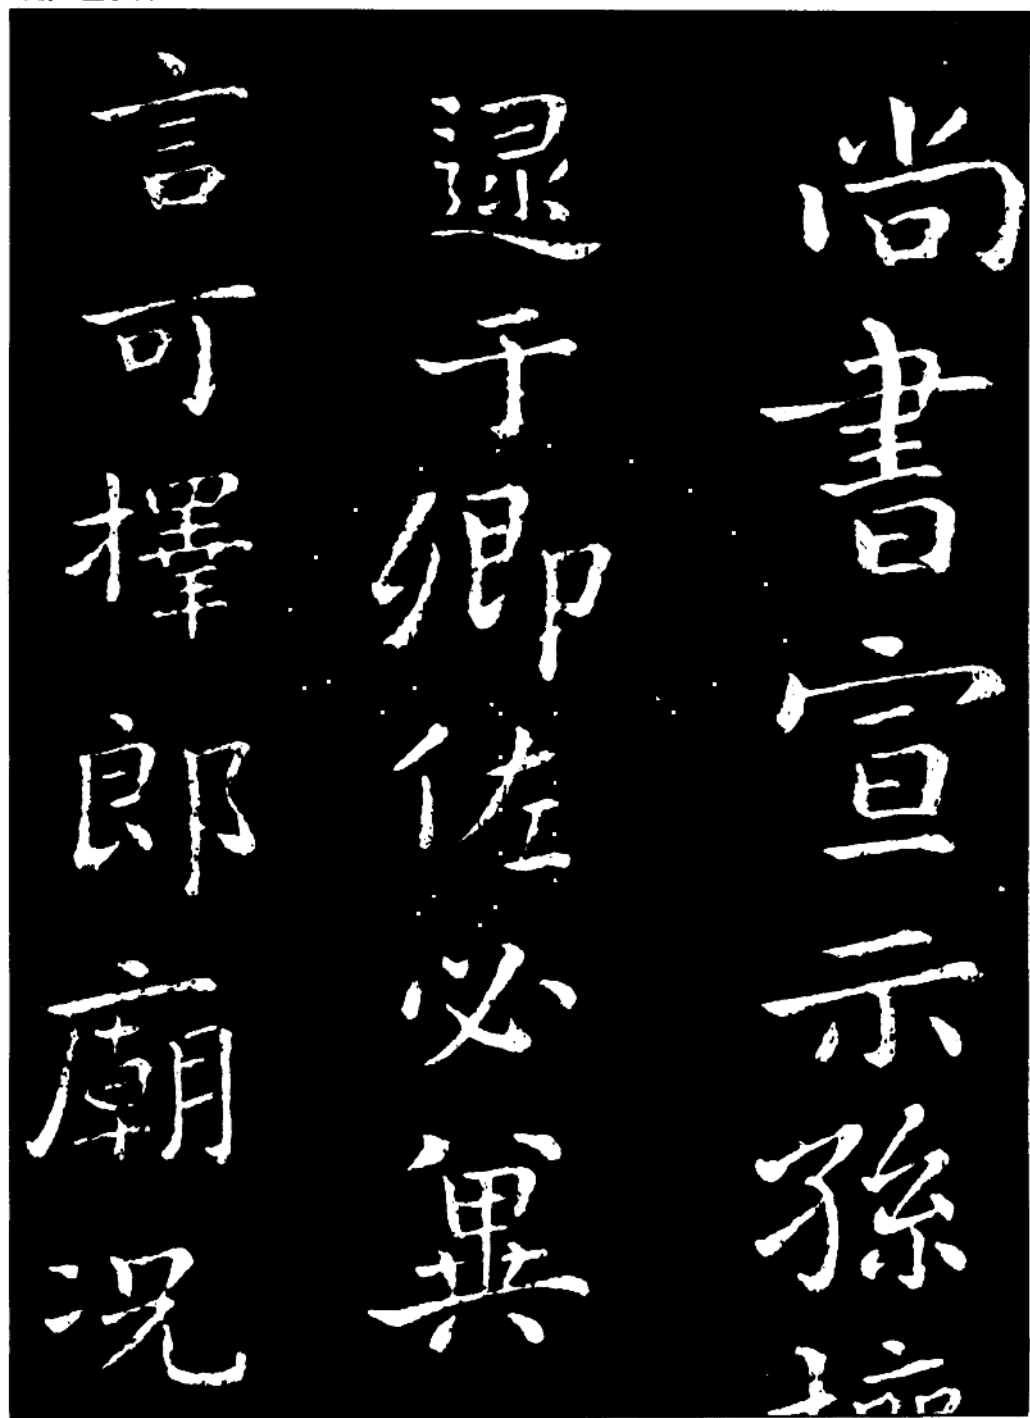 尚書宣示孫權
逮于卿佐必冀
言可擇郎廟況